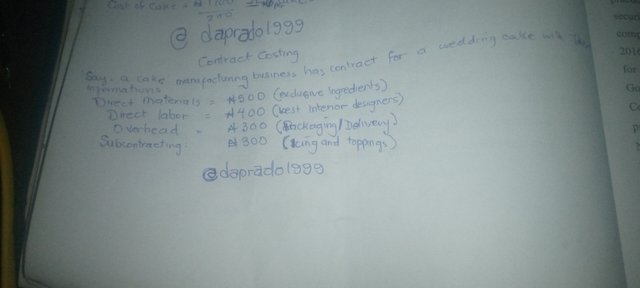 Cost of Cake = ₦1100
@ daprado1999
Contract Costing
Say, a cake manufacturing business has contract for a wedding cake with this
informations
Direct Materials = ₦500 (exclusive Ingredients)
Direct labor = ₦400 (best Interior designers)
Overhead = ₦300 (Packaging/Delivery)
Subcontracting: ₦300 (Icing and toppings)
@daprado1999
secur
comp
201
for
Go